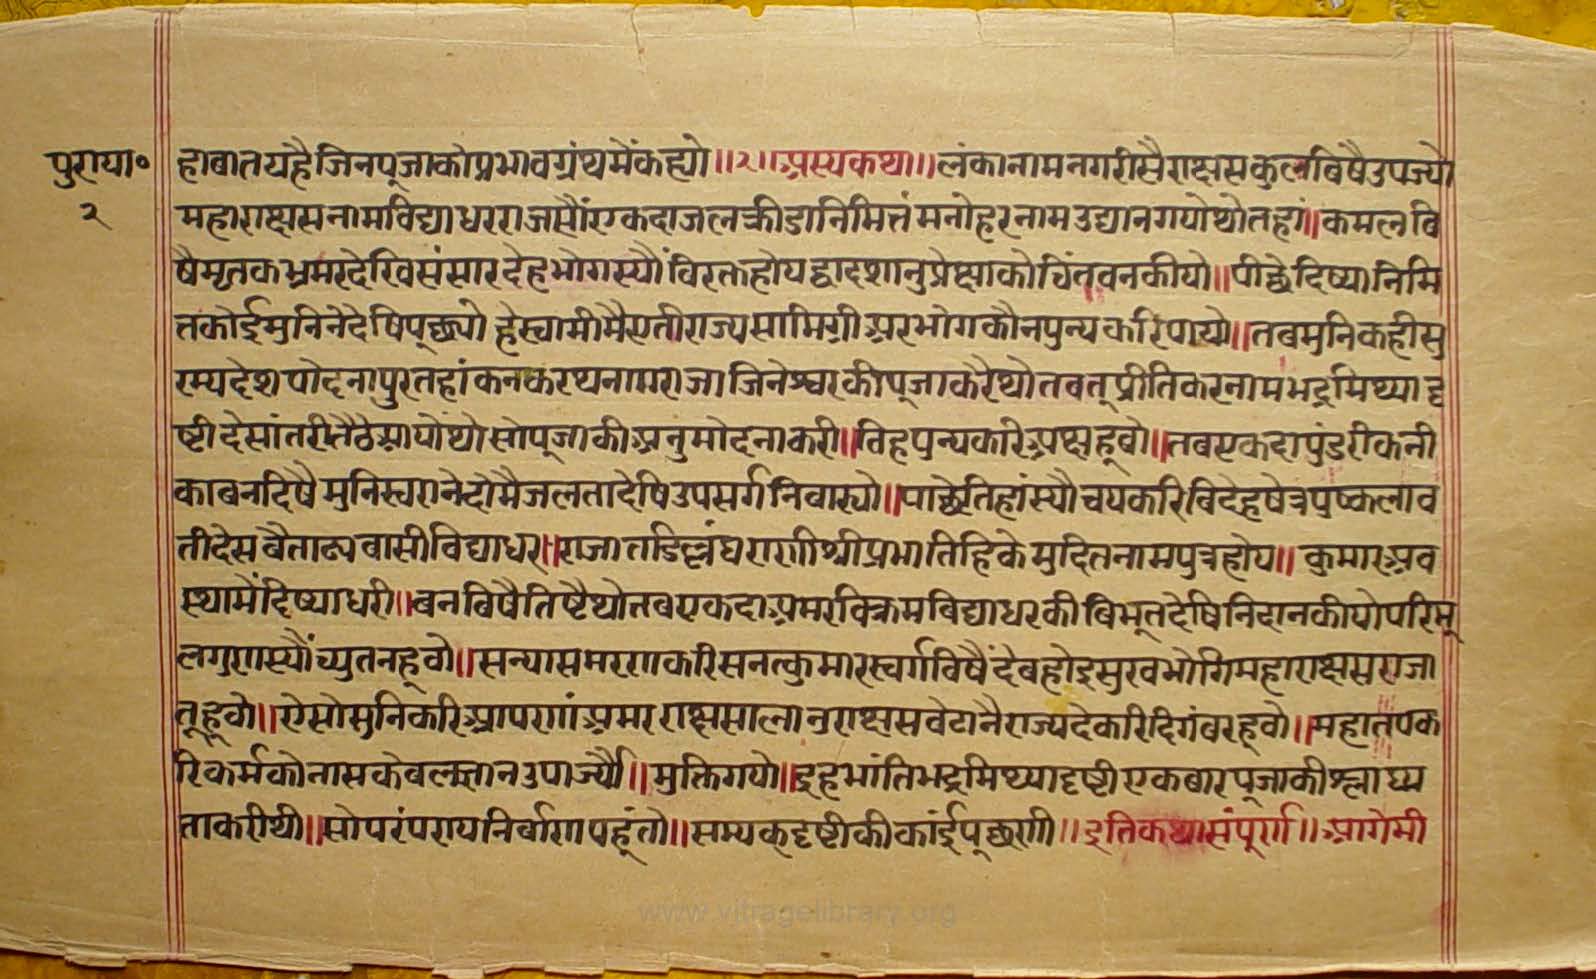 पुराया॰
२
हाबातयहैजिनपूजाकोप्रभावग्रंथमेंकह्यो॥२॥अस्यकथा॥लंकानामनगरीसैराक्षसकुलबिषैउपज्यो
महाराक्षसनामविद्याधरराजसौंएकदाजलक्रीडानिमित्तंमनोहरनामउद्यानगयोथोतहां॥कमलवि
षैमृतकभ्रमरदेखिसंसारदेहभोगस्यौंविरक्तहोयद्वादशानुप्रेक्षाकोचिंतवनकीयो॥पीछेदिष्यानिमि
त्तकोईमुनिनेदेषिपूछ्यो हेस्वामीमैएतीराज्यसामिग्रीअरभोगकौनपुन्यकरिपायो॥तबमुनिकहीसु
रम्यदेशपोदनापुरतहांकनकरथनामराजाजिनेश्वरकीपूजाकरैथोतवत्प्रीतिकरनामभद्रमिथ्यादृ
ष्टीदेसांतरीतैठैआयोथोसोपूजाकीअनुमोदनाकरी॥तिहपुन्यकरिअक्षहूवो॥तबएकदापुंडरीकनी
काबनविषैमुनिस्वरानेदोमैजलतादेषिउपसर्गनिवास्यो॥पाछेतिहांस्यौचयकरिविदेहषेत्रपुष्कलाव
तीदेसबैताढ्यबासीविद्याधर॥राजातडिल्लंघराणीश्रीप्रभातिहिकेमुदितनामपुत्रहोय॥कुमारअव
स्थामेंदिष्याधरी॥बनविषैतिष्टैथोतबएकदाअमरविक्रमविद्याधरकीबिभूतदेषिनिदानकीयोपरिमू
लगुणस्यौंच्युतनहूवो॥सन्यासमरणकरिसनत्कुमारस्वर्गविषैंदेबहोइसुखभोगिमहाराक्षसराजा
तूहूवो॥ऐसोमुनिकरिआपराणांअमरराक्षसालानुराक्षसवेटानैराज्यदेकरिदिगंबरहूवो॥महातपक
रिकर्मकोनासकेबलज्ञानउपाज्यौ॥मुक्तिगयो॥इहभांतिभद्रमिथ्यादृष्टीएकबारपूजाकीश्लाघ्य
ताकरीथी॥सोपरंपरायनिर्बाणपहूंतो॥सम्यकदृष्टीकीकांईपूछणी॥इतिकथासंपूर्ण॥आगेमी
www.vitragelibrary.org